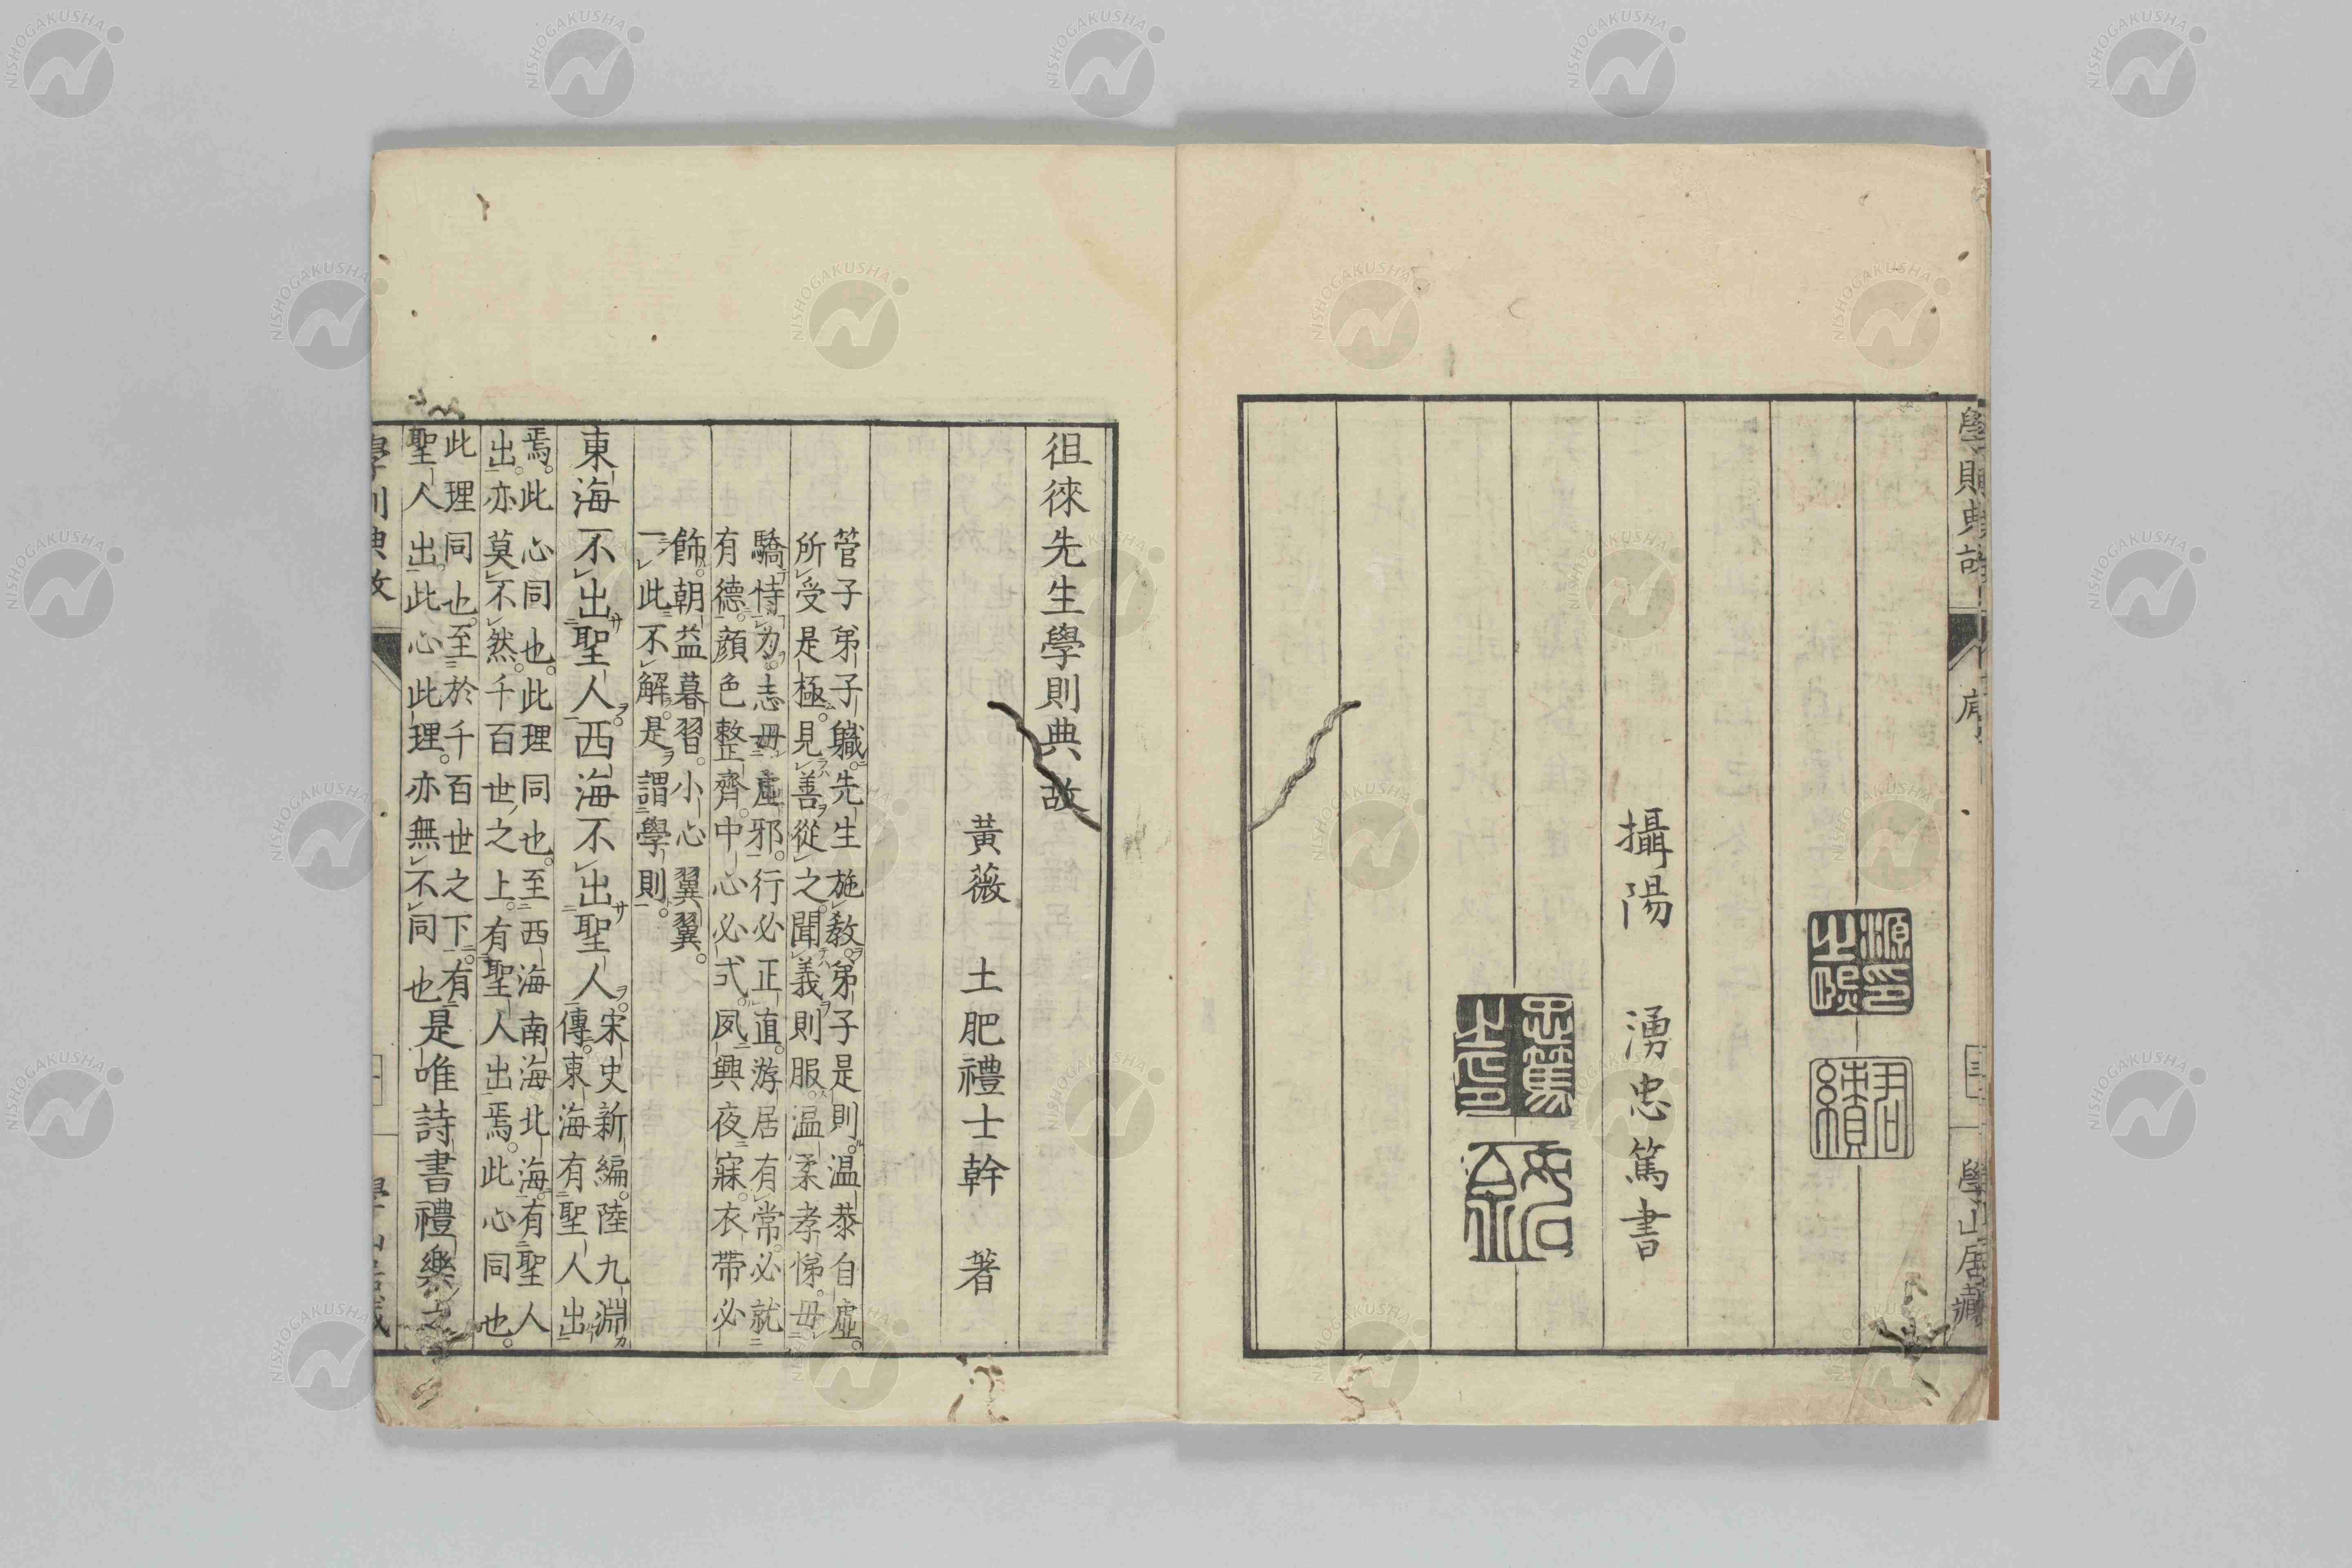 學則典故
序
三
學山居藏
源印
之煕
君
績
攝陽　湧忠篤書
忠篤
之印
徂徠先生學則典故
黃薇　土肥禮士幹　著
管子弟子職。先生施教。弟子是則。温恭自虛。
所受是極。見善從之。聞義則服。温柔孝悌。毋
驕恃力。志毋虛邪。行必正直。游居有常。必就
有德。顔色整齊。中心必式。夙興夜寐。衣帶必
飾。朝益暮習。小心翼翼。
一此不解。是謂學則。
東海不出聖人。西海不出聖人。
宋史新編。陸九淵
傳。東海有聖人出
焉。此心同也。此理同也。至西海南海北海。有聖人
出。亦莫不然。千百世之上。有聖人出焉。此心同也。
此理同也。至於千百世之下。有
聖人出。此心此理。亦無不同也
是唯詩書禮樂之
學則典故
NISHOGAKUSHA